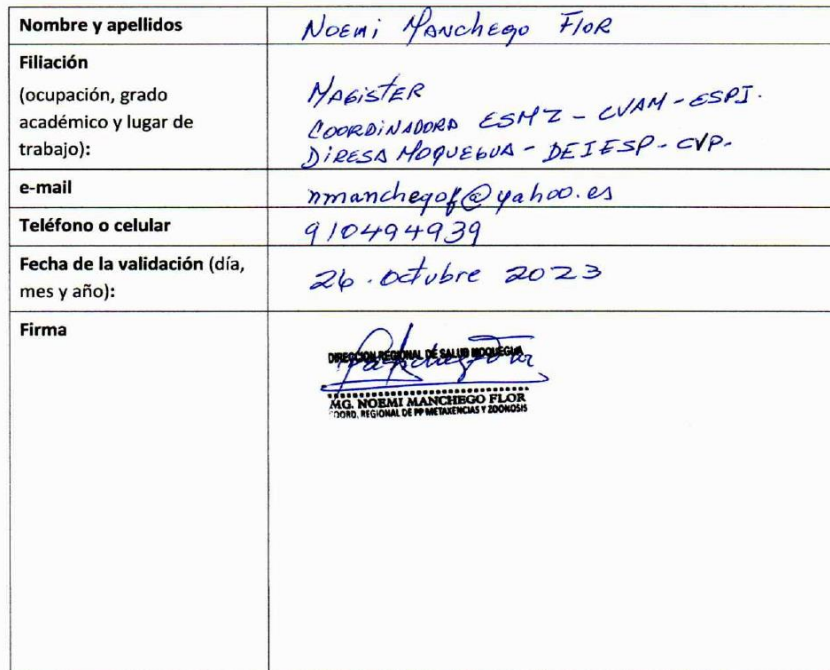 Nombre y apellidos
Noemi Manchego Flor
Filiación
(ocupación, grado
académico y lugar de
trabajo):
Magister
Coordinadora ESMZ - CVAM - ESPI.
Diresa Moquegua - DEIESP - CVP.
e-mail
nmanchegof@yahoo.es
Teléfono o celular
910494939
Fecha de la validación (día,
mes y año):
26. octubre 2023
Firma
DIRECCION REGIONAL DE SALUD MOQUEGUA
MG. NOEMI MANCHEGO FLOR
COORD. REGIONAL DE PP METAXENICAS Y ZOONOSIS